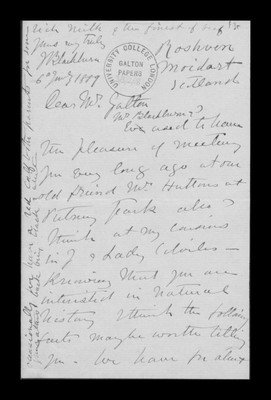 rich milk & the finest of beef
Yours my truly
J Blackburn
6th Jany 1889
UNIVERSITY COLLEGE LONDON
GALTON
PAPERS
Roshven
Moidart
Scotland
Dear Mr. Galton
Mr Blackburn &
I used to have
the pleasure of meeting
you very long ago at our
old friend Mr Huttons at
Putney Park also I
think at my cousins
Sir J & Lady
Knowing that you are
interested in natural
history I think the following
facts may be worth telling
you. We have for about
occasionally we have a red calf both parents
being black